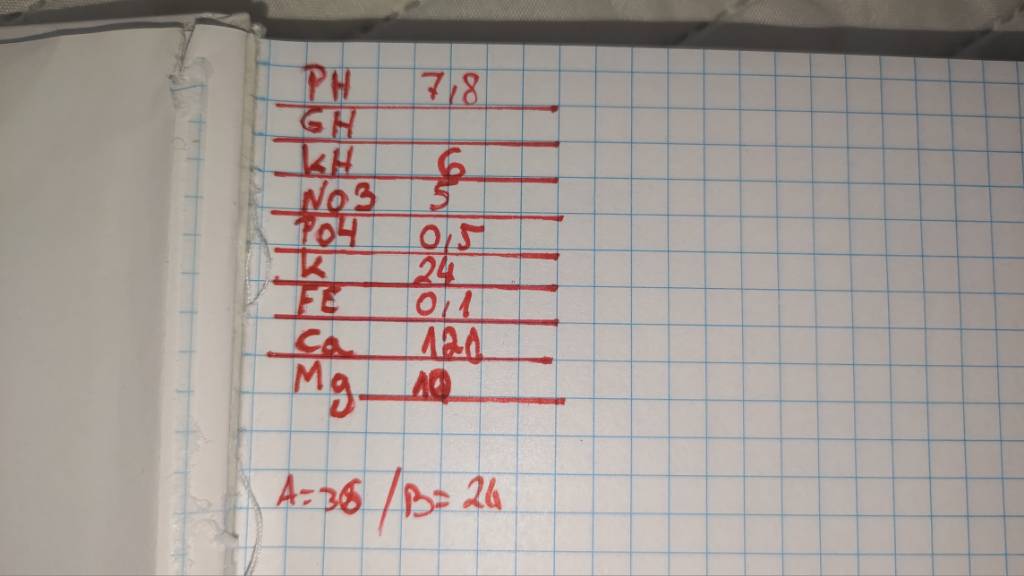 PH 7,8
GH
KH 6
NO3 5
PO4 0,5
K 24
FE 0,1
Ca 120
Mg 10
A=36 / B= 24